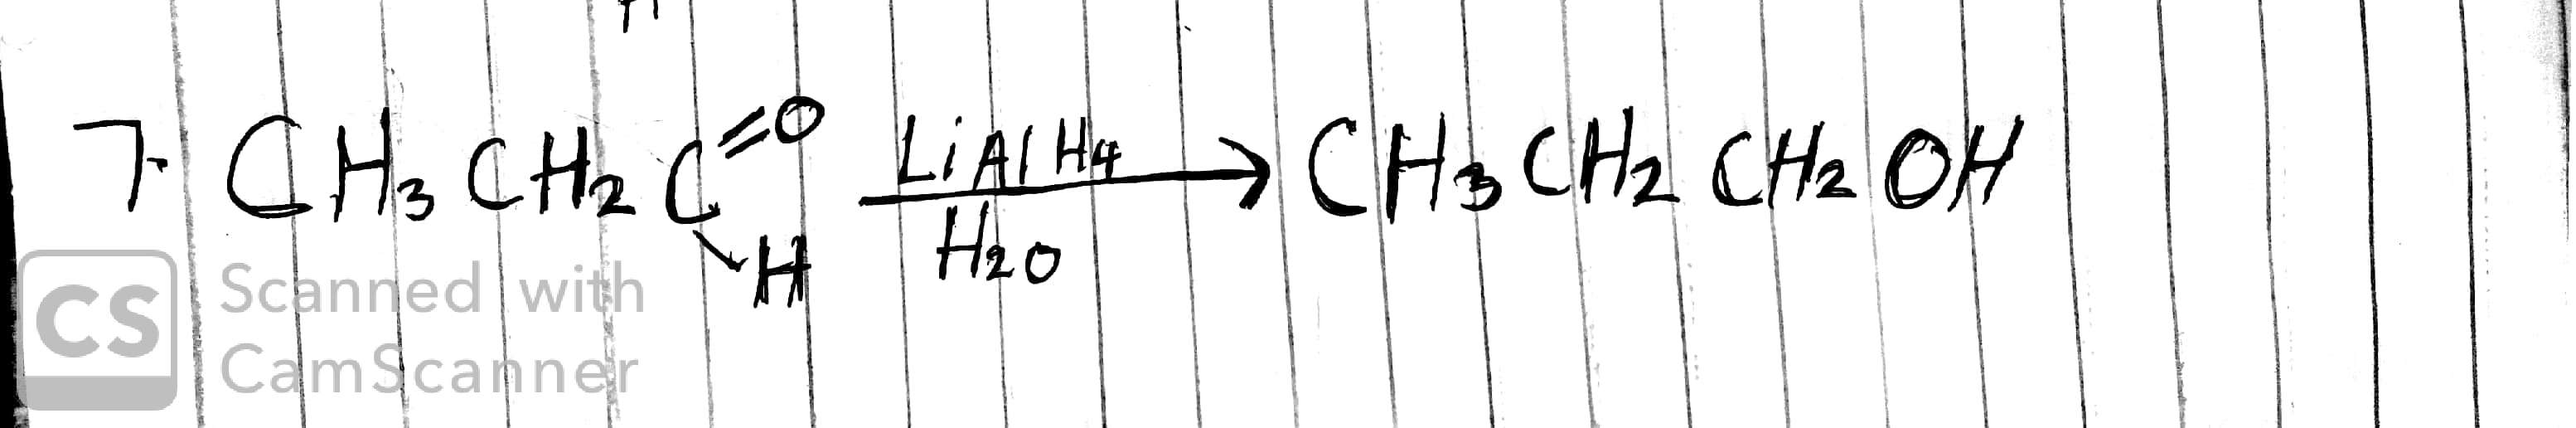 7. CH₃ CH₂ C=O H LiAlH₄ H₂O → CH₃ CH₂ CH₂ OH
CS Scanned with
CamScanner